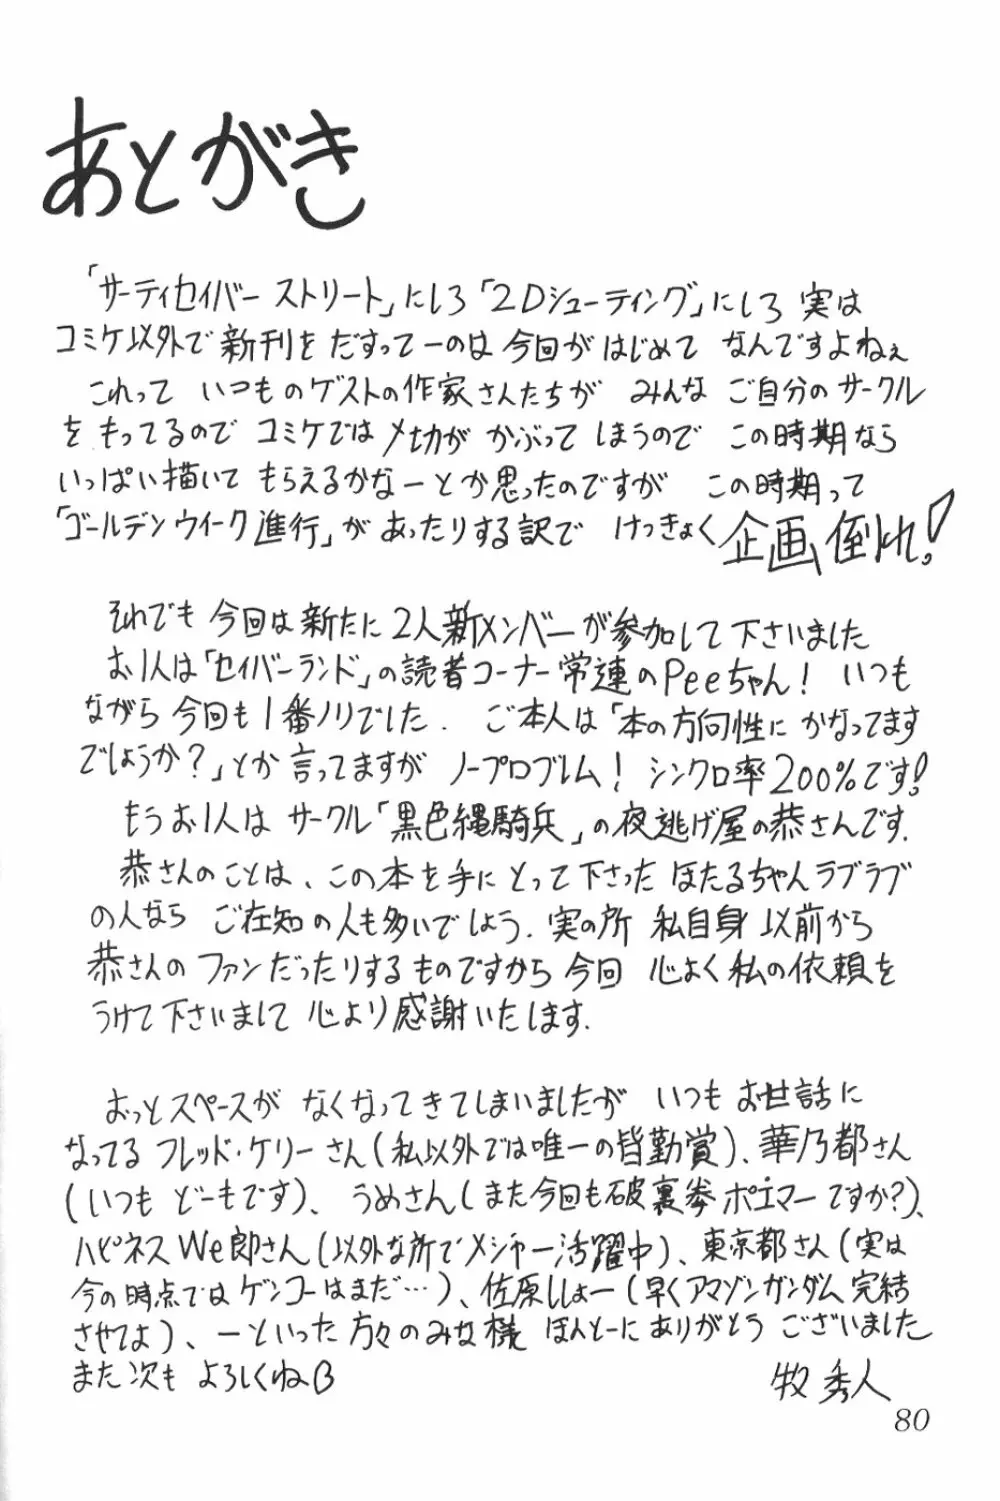 あとがき
「サーティセイバー ストリート」にしろ「2Dシューティング」にしろ 実は
コミケ以外で新刊をだすってーのは今回がはじめて なんですよねぇ
これって いつものゲストの作家さんたちが みんな ご自分のサークル
をもってるのでコミケでは〆切がかぶってしまうので この時期なら
いっぱい描いてもらえるかなーとか思ったのですが この時期って
「ゴールデンウイーク進行」があったりする訳で けっきょく企画倒れ!
それでも今回は新たに2人新メンバーが参加して下さいました
お1人は「セイバーランド」の読者コーナー常連のPeeちゃん! いつも
ながら今回も1番ノリでした. ご本人は「本の方向性にかなってます
でしょうか?」とか言ってますが ノープロブレム! シンクロ率200%です!
もうお1人は サークル「黒色縄騎兵」の夜逃げ屋の恭さんです.
恭さんのことは、この本を手にとって下さった ほたるちゃんラブラブ
の人なら ご在知の人も多いでしょう. 実の所 私自身 以前から
恭さんのファンだったりするものですから今回 心よく私の依頼を
うけて下さいまして 心より感謝いたします.
おっとスペースが なくなってきてしまいましたが いつも お世話に
なってる フレッド・ケリーさん(私以外では唯一の皆勤賞)、華乃都さん
(いつも どーもです)、うめさん(また今回も破裏拳ポエマーですか?)、
ハピネスWe郎さん(以外な所でメジャー活躍中)、東京都さん(実は
今の時点ではゲンコーはまだ…)、佐原ししょー(早くアマゾンガンダム完結
させてよ)、ーといった方々のみな様 ほんとーにありがとう ございました
また次も よろしくねβ
牧 秀人
80